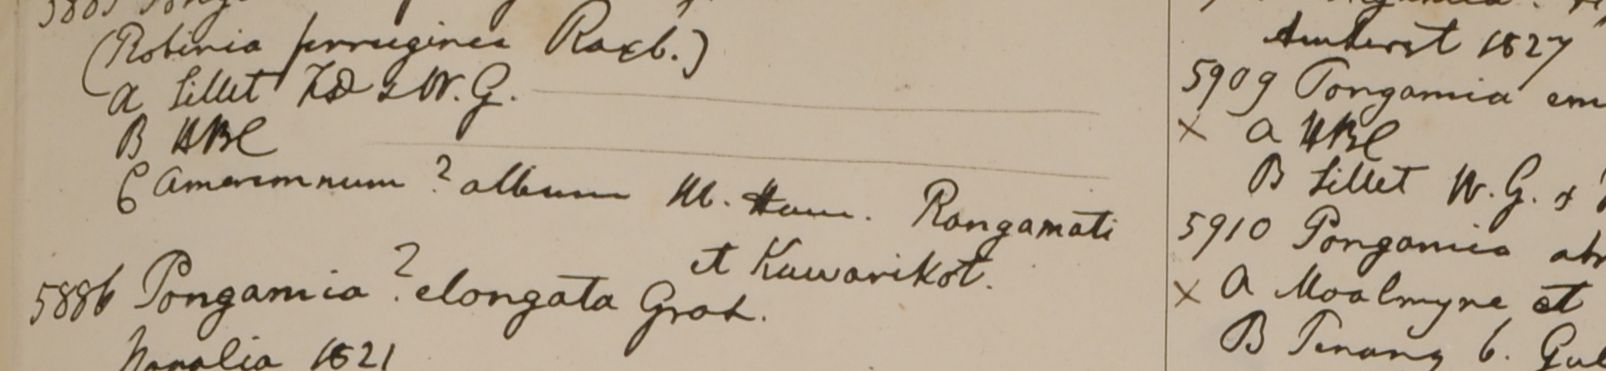 (Robinia ferruginea Roxb.)
a Sillet F.D & W.G.
B HBC
C Amerimnum? album H. Ham. Rangamati
et Kuwarikot.
5886 Pongamia? elongata Grah.
Napalia 1821
Amherst 1827
5909 Pongamia
× a HBC
B Sillet W.G. &
5910 Pongamia
× a Moalmyne et
B Penang b.